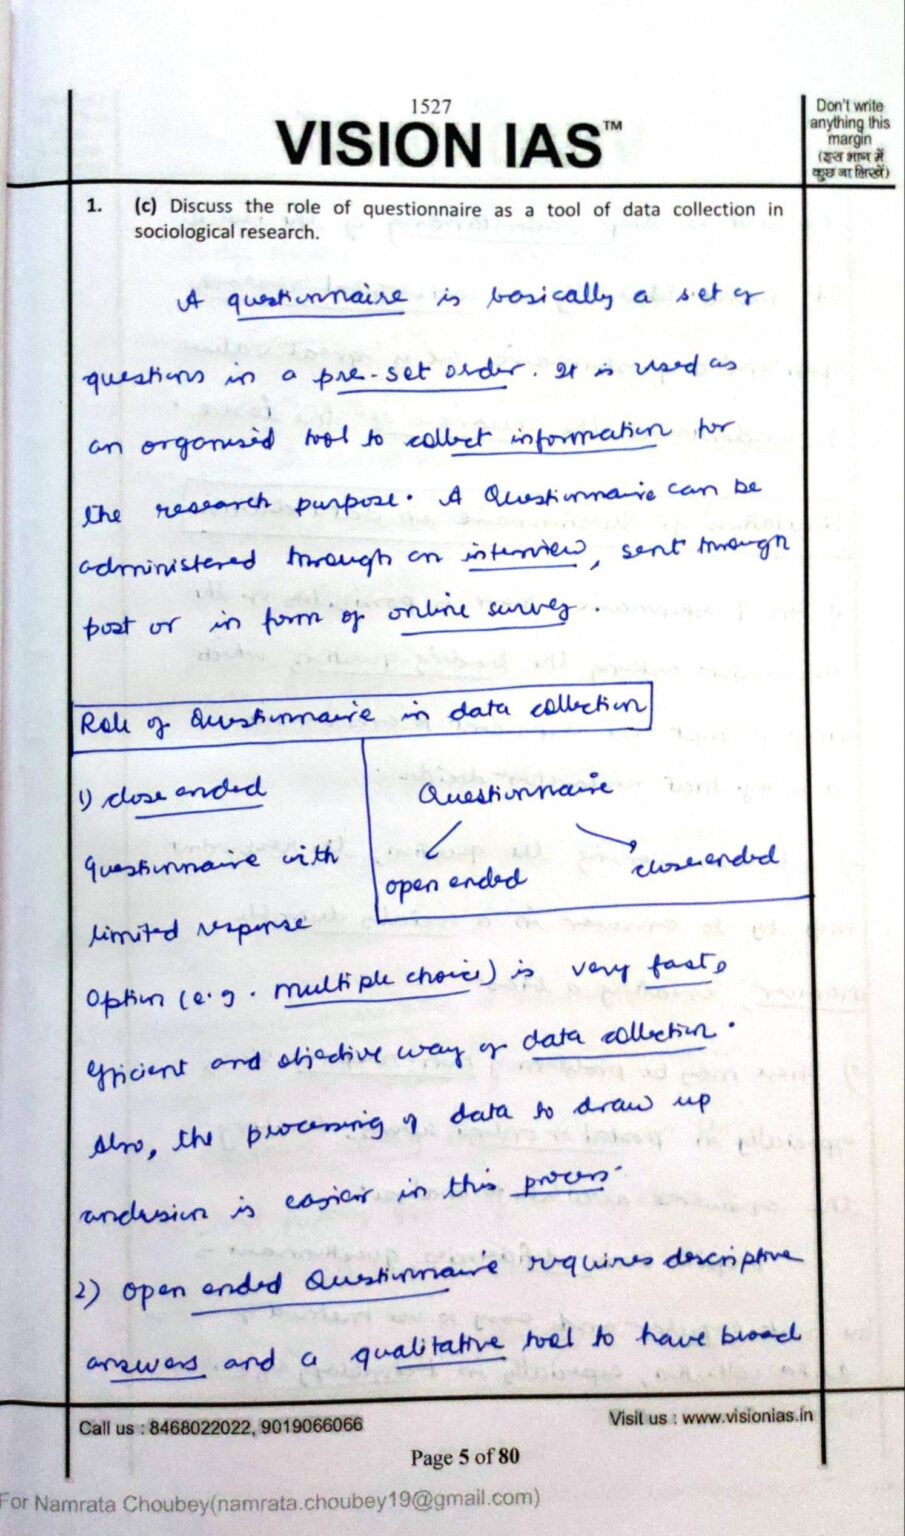 1527
VISION IAS™
Don't write
anything this
margin
(इस भाग में
कुछ ना लिखें)
1. (c) Discuss the role of questionnaire as a tool of data collection in
sociological research.
A questionnaire is basically a set of
questions in a pre-set order. It is used as
an organised tool to collect information for
the research purpose. A Questionnaire can be
administered through an interview, sent through
post or in form of online survey.
Role of Questionnaire in data collection
1) close ended
Questionnaire with
limited response
Questionnaire
open ended
close ended
Option (e.g. multiple choice) is very fast,
efficient and objective way of data collection.
Also, the processing of data to draw up
conclusion is easier in this process.
2) Open ended Questionnaire requires descriptive
answers and a qualitative tool to have broad
Call us : 8468022022, 9019066066
Visit us : www.visionias.in
Page 5 of 80
For Namrata Choubey(namrata.choubey19@gmail.com)